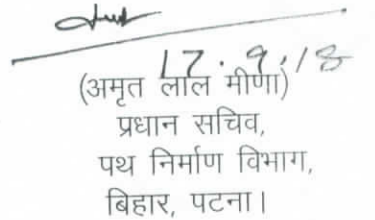 17.9.18
(अमृत लाल मीणा)
प्रधान सचिव,
पथ निर्माण विभाग,
बिहार, पटना।